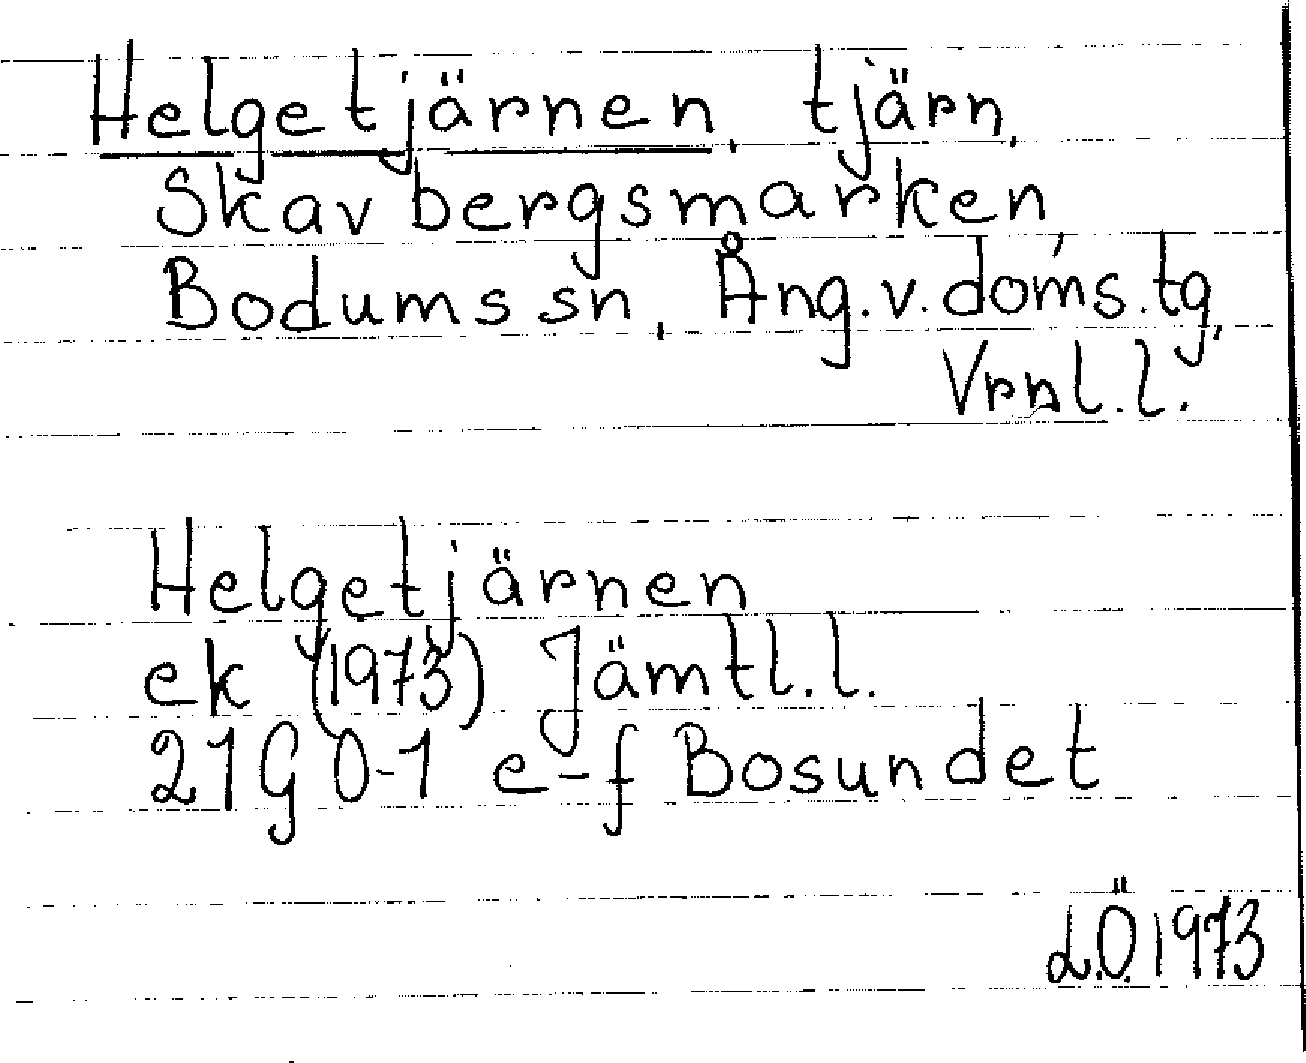 Helgetjärnen, tjärn,
Skavbergsmarken,
Bodums sn, Ång.v.doms.tg,
Vrnl.l.
Helgetjärnen
ek (1973) Jämtl.l.
21G 0-1 e-f Bosundet
L.Ö. 1973